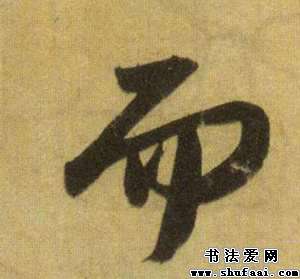 而
书法爱网
www.shufaai.com